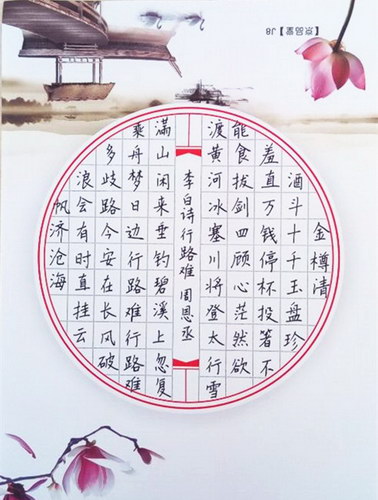 金樽清
酒斗十千玉盘珍
羞直万钱停杯投箸不
能食拔剑四顾心茫然欲
渡黄河冰塞川将登太行雪
李白诗行路难 周恩丞
满山闲来垂钓碧溪上忽复
乘舟梦日边行路难行路难
多歧路今安在长风破
浪会有时直挂云
帆济沧海